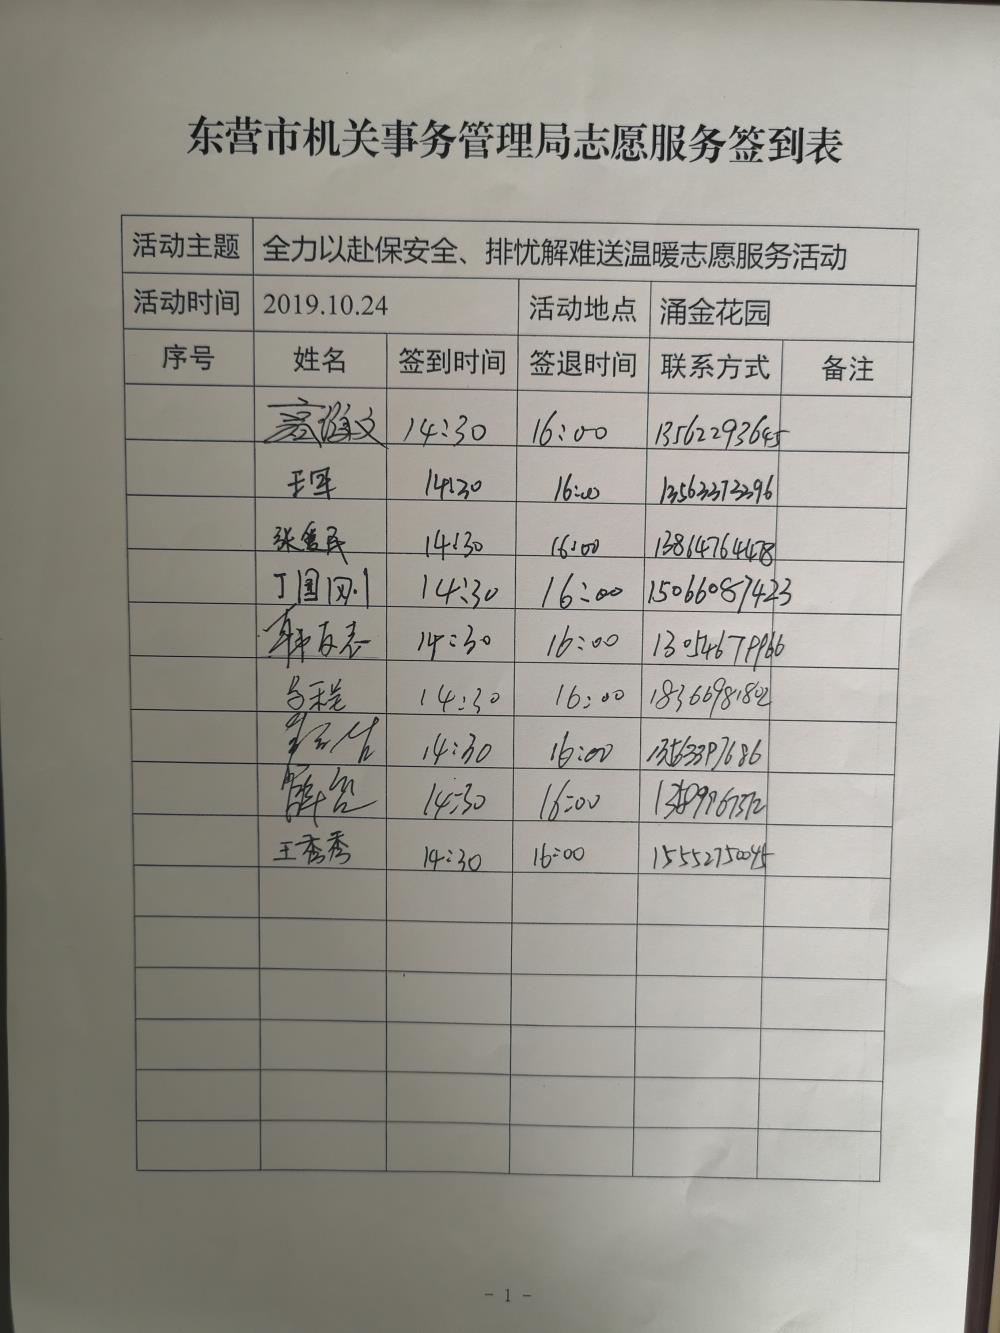 东营市机关事务管理局志愿服务签到表
活动主题 全力以赴保安全、排忧解难送温暖志愿服务活动
活动时间 2019.10.24 活动地点 涌金花园
序号 姓名 签到时间 签退时间 联系方式 备注
14:30 16:00 13562293645
王军 14:30 16:00 13563373396
14:30 16:00 13864764478
丁国刚 14:30 16:00 15066087423
韩友志 14:30 16:00 13054679966
14:30 16:00 18366981802
14:30 16:00 13563397686
14:30 16:00
王秀秀 14:30 16:00 15552750045
- 1 -